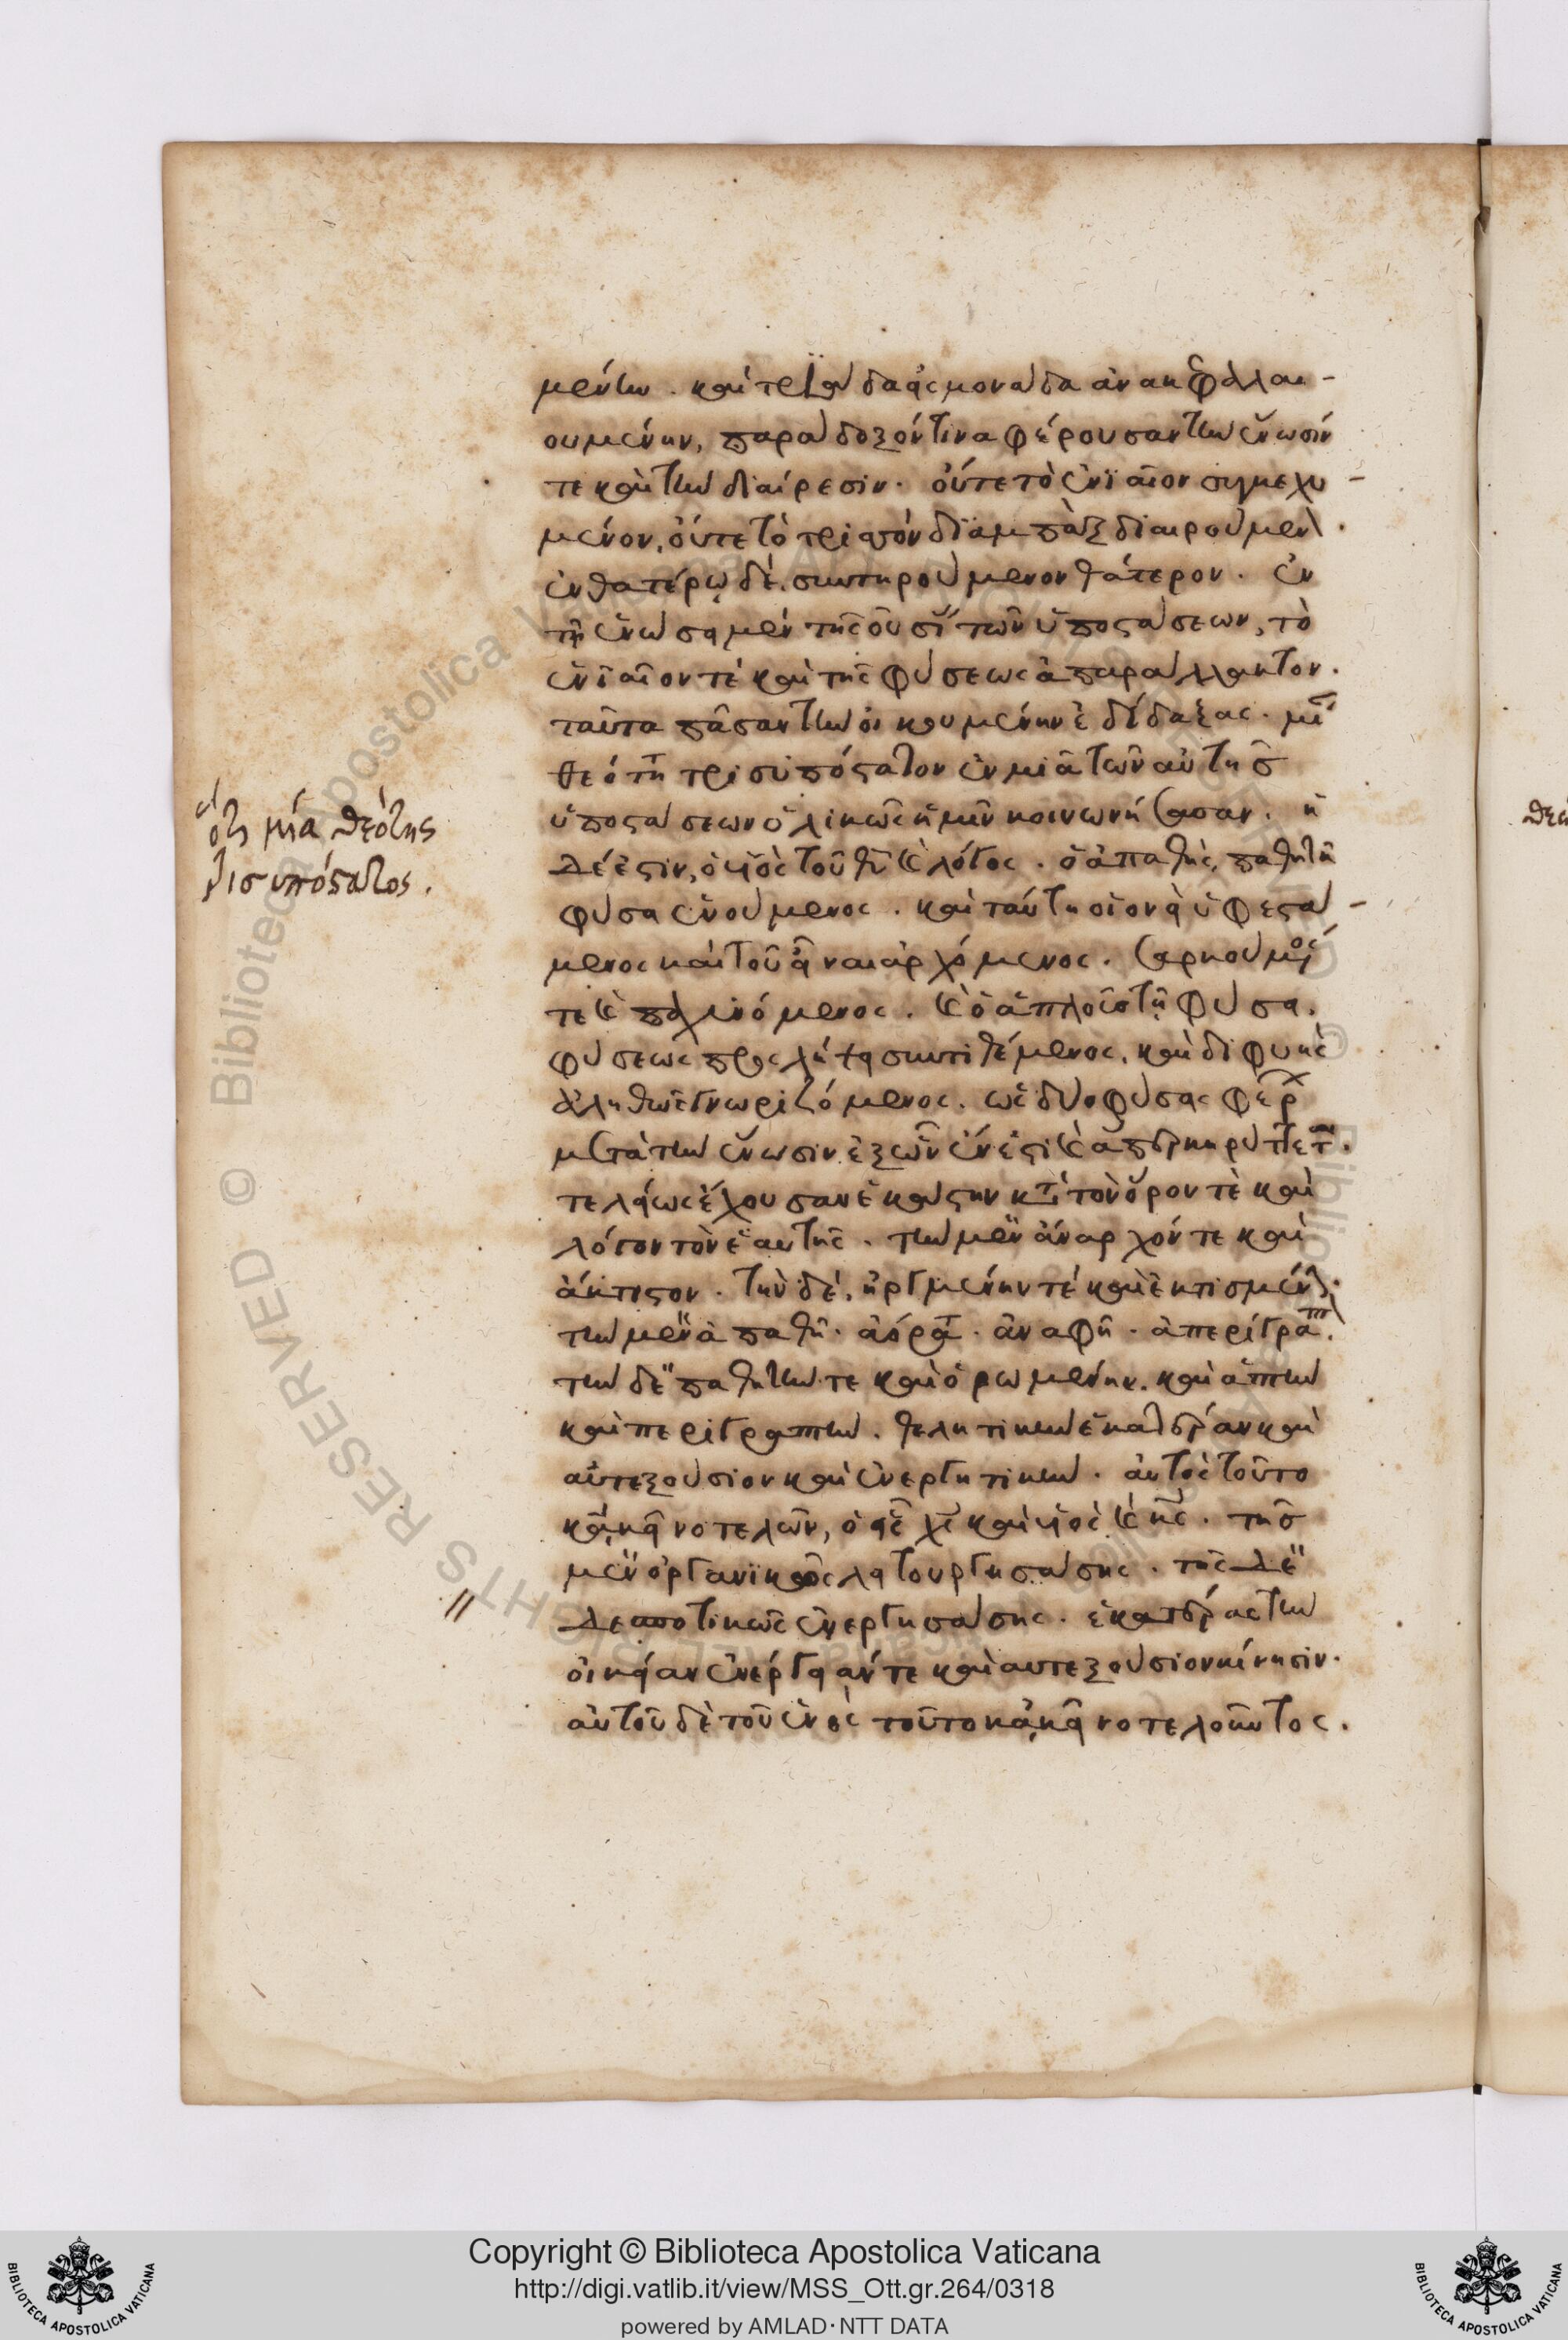 μένην. καὶ τριάδα εἰς μονάδα ἀνακεφαλαι-
ουμένην, παράδοξόν τινα φέρουσαν τὴν ἕνωσίν
τε καὶ τὴν διαίρεσιν. οὔτε τὸ ἑνιαῖον συγκεχυ-
μένον, οὔτε τὸ τρισσὸν διαμπὰξ διαιρούμεν.
ἐν θατέρῳ δὲ, συντηρούμενον θάτερον. ἐν
τῇ ἑνώσει μὲν τῆς οὐσί τῶν ὑποστάσεων, τὸ
ἑνιαῖον τὲ καὶ τῆς φύσεως ἀπαράλλακτον.
ταῦτα πᾶσαν τὴν οἰκουμένην ἐδίδαξας. μί
θεότη τρισυπόστατον ἐν μιᾷ τῶν αὐτῆς
ὑποστάσεων ὁλικῶς ἡμῖν κοινωνήσασαν. ἡ
δέ ἐστιν, ὁ υἱὸς τοῦ θῦ καὶ λόγος. ὁ ἀπαθὴς, παθητῇ
φύσει ἑνούμενος. καὶ ταύτη οἱονεὶ ὑφεστά-
μενος καὶ τοῦ εἶναι ἀρχόμενος. σαρκούμος
τε καὶ παχυνόμενος. καὶ ὁ ἁπλοῦς τῇ φύσει,
φύσεως προσλήψει συντιθέμενος, καὶ διφυὴς
ἀληθῶς γνωριζόμενος. ὡς δύο φύσεις φέρ
μετὰ τὴν ἕνωσιν ἐξ ὧν ἕν ἐστι καὶ
τελείως ἔχουσαν ἑκάστην κατὰ τὸν ὅρον τὲ καὶ
λόγον τὸν ἑαυτῆς. τὴν μὲν ἄναρχόν τε καὶ
ἄκτιστον. τὴν δὲ, ἠργμένην τέ καὶ ἐκτισμέν.
τὴν μὲν ἀπαθῆ. ἀόρατ. ἀναφῆ. ἀπερίγραπτ.
τὴν δὲ παθητήν τε καὶ ὁρωμένην. καὶ ἁπτὴν
καὶ περιγραπτὴν. θελητικὴν ἑκατέραν καὶ
αὐτεξούσιον καὶ ἐνεργητικὴν. αὐτὸς τοῦτο
κἀκεῖνο τελῶν, ὁ εἷς χς καὶ υἱὸς καὶ κς. τῆς
μὲν ὀργανικῶς λειτουργησάσης. τῆς δὲ
δεσποτικῶς ἐνεργησάσης. ἑκατέρας τὴν
οἰκείαν ἐνέργειάν τε καὶ αὐτεξούσιον κίνησιν.
αὐτοῦ δὲ τοῦ ἑνὸς τοῦτο κἀκεῖνο τελοῦντος.
ὅτι μία θεότης
τρισυπόστατος.
Copyright © Biblioteca Apostolica Vaticana
http://digi.vatlib.it/view/MSS_Ott.gr.264/0318
powered by AMLAD·NTT DATA